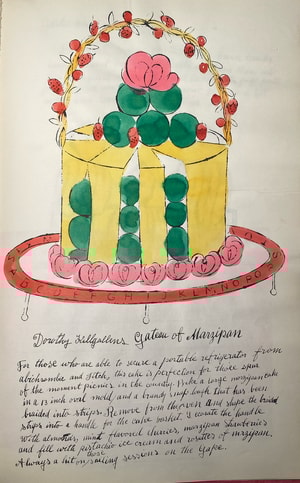 A B C D E F G H I J K L M N O P Q R S
Dorothy Killgallens Gateau of Marzipan
For those who are able to secure a portable refrigerator from
abichrombie and Fitch, this cake is perfection for those spur
of the moment picnics in the country. Bake a large marzipan cake
in a 13 inch oval mold, and a brandy snap dough that has been
braided into strips. Remove from the oven and shape the braided
strips into a handle for the cake basket. Decorate the handle
with almonttas, mint flavored cherries, marzipan strawberries
and fill with pistachio ice cream and rosettes of marzipan.
Always a hit on those sailing sessions on the Cape.